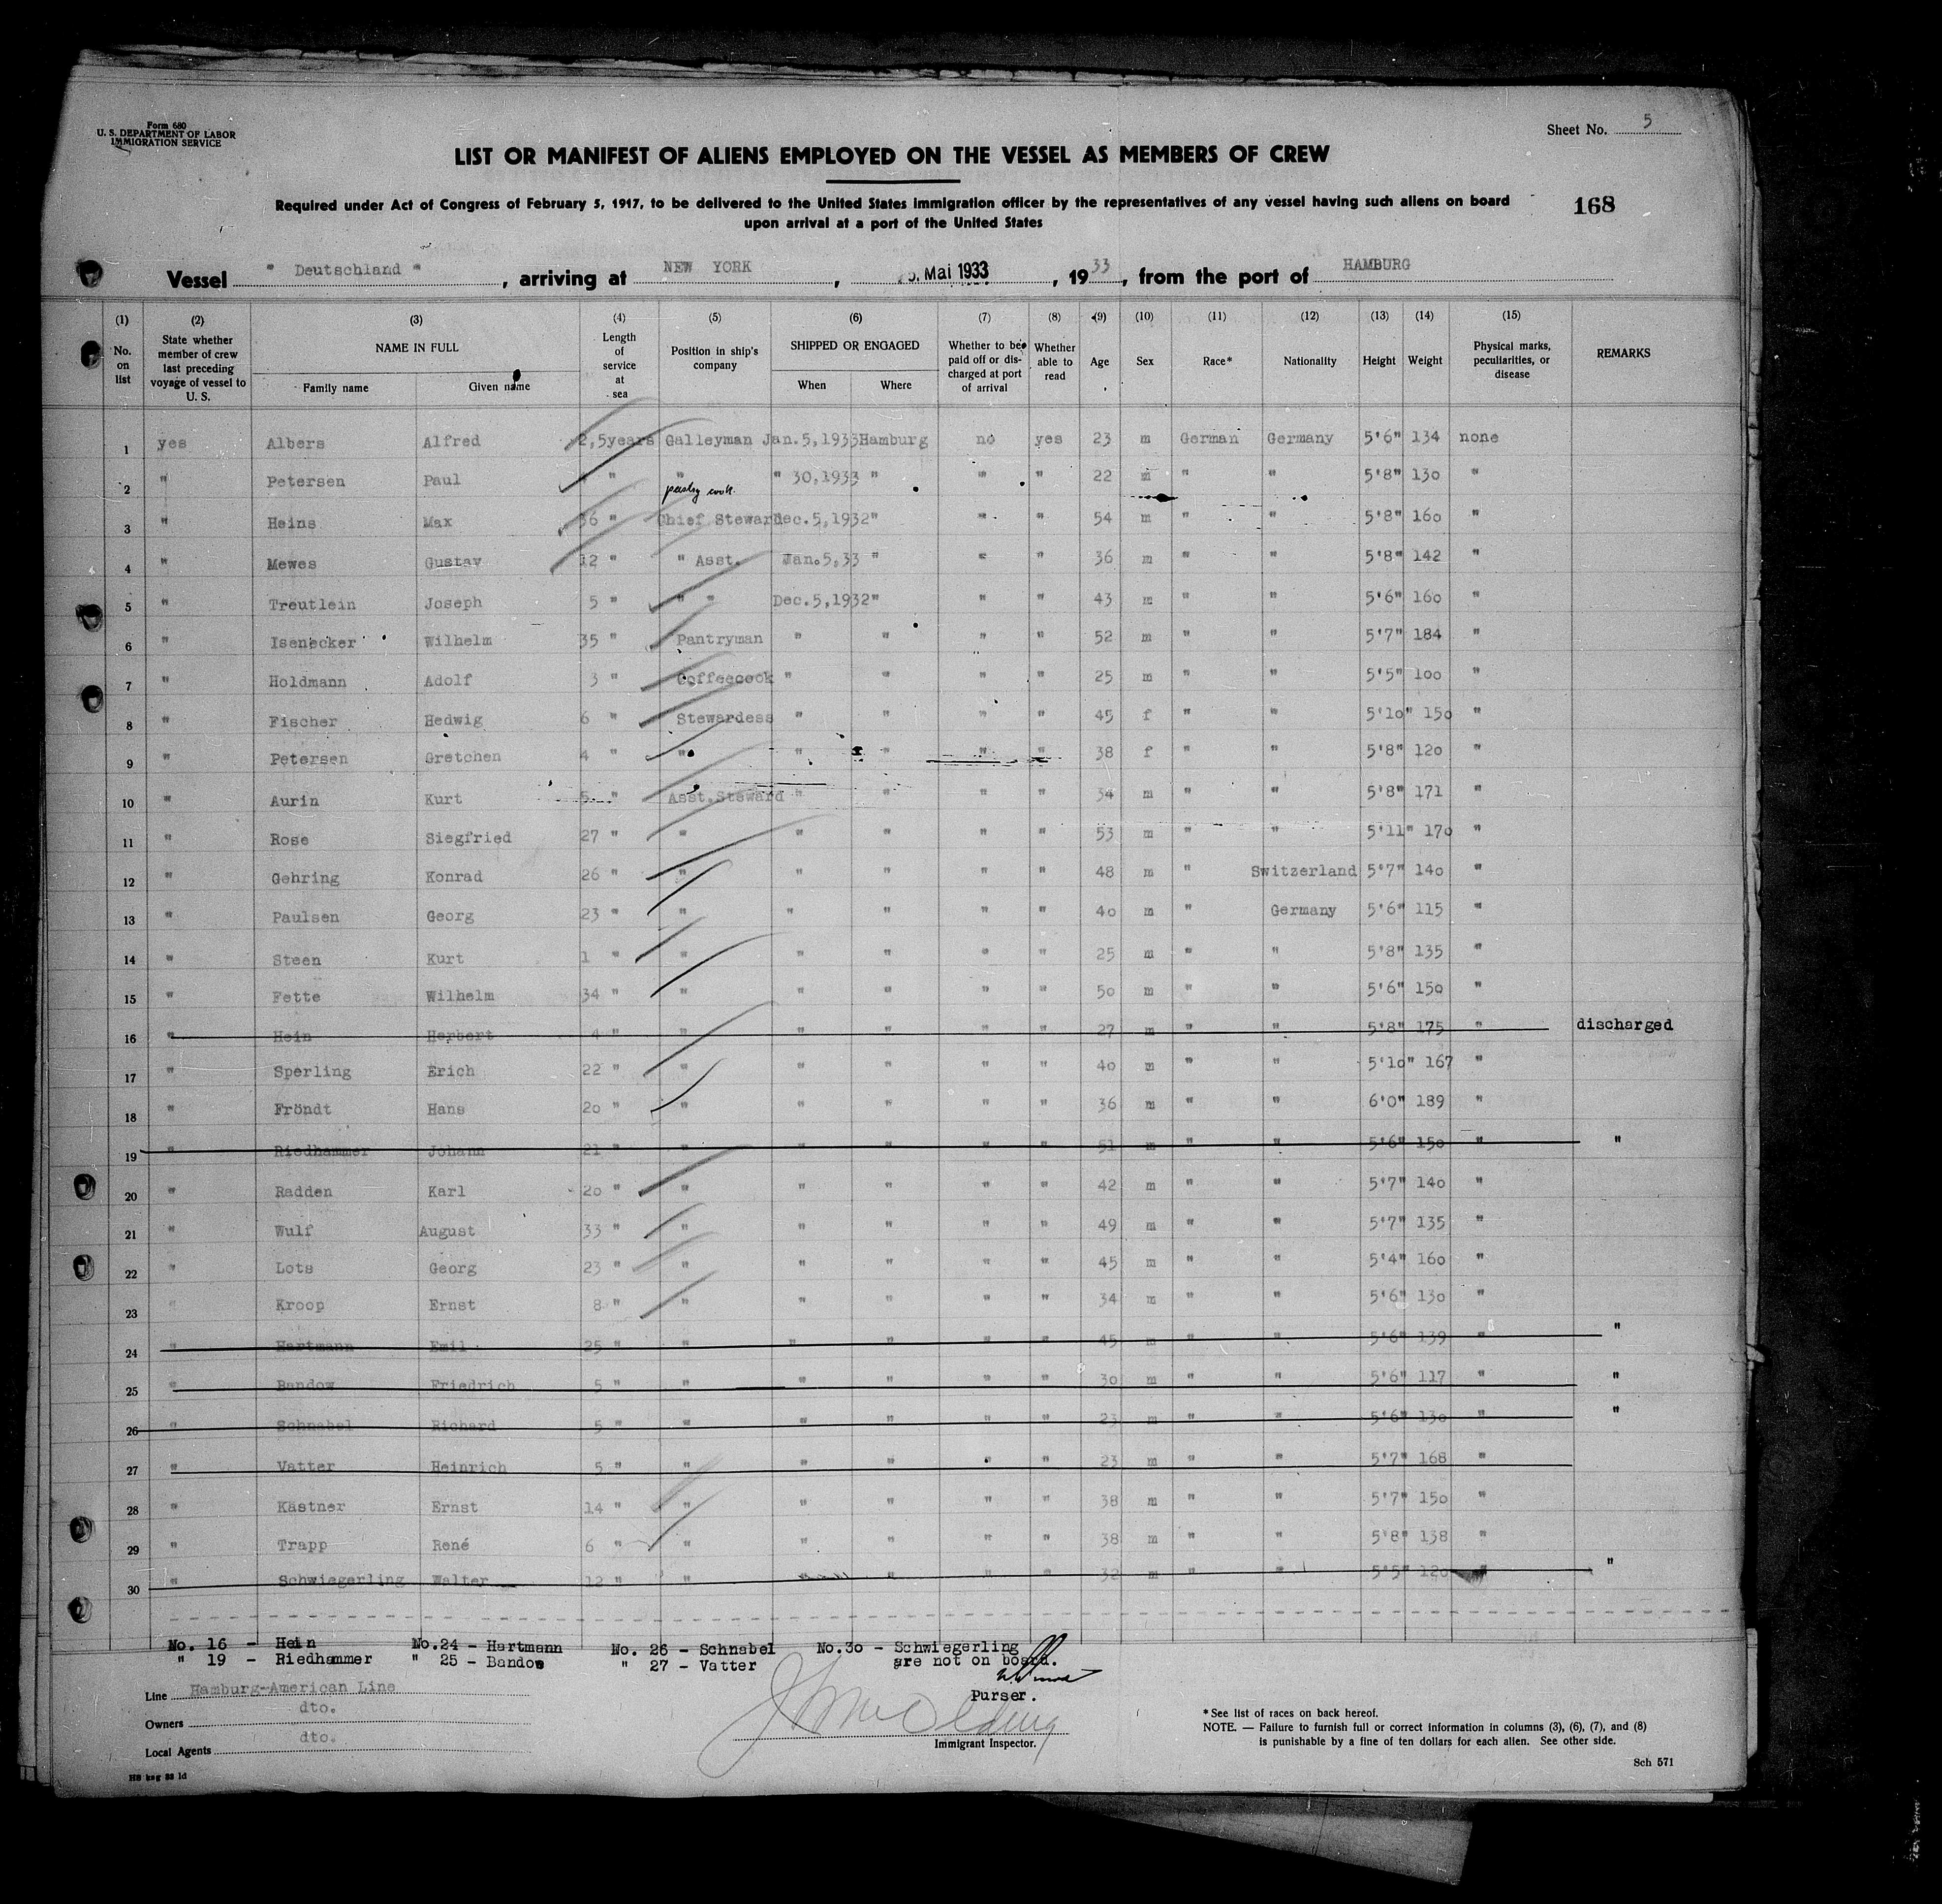 Form 680
U. S. DEPARTMENT OF LABOR
IMMIGRATION SERVICE
Sheet No. 5
LIST OR MANIFEST OF ALIENS EMPLOYED ON THE VESSEL AS MEMBERS OF CREW
Required under Act of Congress of February 5, 1917, to be delivered to the United States immigration officer by the representatives of any vessel having such aliens on board
upon arrival at a port of the United States
168
Vessel " Deutschland ", arriving at NEW YORK, 5. Mai 1933, 1933, from the port of HAMBURG
(1) (2) (3) (4) (5) (6) (7) (8) (9) (10) (11) (12) (13) (14) (15)
No. on list
State whether member of crew last preceding voyage of vessel to U. S.
NAME IN FULL
Family name Given name
Length of service at sea
Position in ship's company
SHIPPED OR ENGAGED
When Where
Whether to be paid off or discharged at port of arrival
Whether able to read
Age Sex Race* Nationality Height Weight
Physical marks, peculiarities, or disease
REMARKS
1 yes Albers Alfred 2,5years Galleyman Jan.5,1933 Hamburg no yes 23 m German Germany 5'6" 134 none
2 " Petersen Paul " " " 30,1933 " " " 22 m " " 5'8" 130 "
pastry cook.
3 " Heins Max 36 " Chief Steward Dec.5,1932 " " " 54 m " " 5'8" 160 "
4 " Mewes Gustav 12 " " Asst. Jan.5,33 " " " 36 m " " 5'8" 142 "
5 " Treutlein Joseph 5 " " " Dec.5,1932 " " " 43 m " " 5'6" 160 "
6 " Isenecker Wilhelm 35 " Pantryman " " " " 52 m " " 5'7" 184 "
7 " Holdmann Adolf 3 " Coffeecook " " " " 25 m " " 5'5" 100 "
8 " Fischer Hedwig 6 " Stewardess " " " " 45 f " " 5'10" 150 "
9 " Petersen Gretchen 4 " " " " " " 38 f " " 5'8" 120 "
10 " Aurin Kurt 5 " Asst.Steward " " " " 34 m " " 5'8" 171 "
11 " Rose Siegfried 27 " " " " " " 53 m " " 5'11" 170 "
12 " Gehring Konrad 26 " " " " " " 48 m " Switzerland 5'7" 140 "
13 " Paulsen Georg 23 " " " " " " 40 m " Germany 5'6" 115 "
14 " Steen Kurt 1 " " " " " " 25 m " " 5'8" 135 "
15 " Fette Wilhelm 34 " " " " " " 50 m " " 5'6" 150 "
16 " Hein Herbert 4 " " " " " " 27 m " " 5'8" 175 " discharged
17 " Sperling Erich 22 " " " " " " 40 m " " 5'10" 167 "
18 " Fröndt Hans 20 " " " " " " 36 m " " 6'0" 189 "
19 " Riedhammer Johann 21 " " " " " " 51 m " " 5'6" 150 " "
20 " Radden Karl 20 " " " " " " 42 m " " 5'7" 140 "
21 " Wulf August 33 " " " " " " 49 m " " 5'7" 135 "
22 " Lots Georg 23 " " " " " " 45 m " " 5'4" 160 "
23 " Kroop Ernst 8 " " " " " " 34 m " " 5'6" 130 "
24 " Hartmann Emil 25 " " " " " " 45 m " " 5'6" 139 " "
25 " Bandow Friedrich 5 " " " " " " 30 m " " 5'6" 117 " "
26 " Schnabel Richard 5 " " " " " " 23 m " " 5'6" 130 " "
27 " Vatter Heinrich 5 " " " " " " 23 m " " 5'7" 168 "
28 " Kästner Ernst 14 " " " " " " 38 m " " 5'7" 150 "
29 " Trapp René 6 " " " " " " 38 m " " 5'8" 138 "
30 " Schwiegerling Walter 12 " " " " " " 32 m " " 5'5" 120 " "
No. 16 - Hein No.24 - Hartmann No. 26 - Schnabel No.30 - Schwiegerling
" 19 - Riedhammer " 25 - Bandow " 27 - Vatter are not on board.
Line Hamburg-American Line
Purser.
Owners dto.
Local Agents dto.
Immigrant Inspector.
* See list of races on back hereof.
NOTE. — Failure to furnish full or correct information in columns (3), (6), (7), and (8)
is punishable by a fine of ten dollars for each alien. See other side.
Sch 571